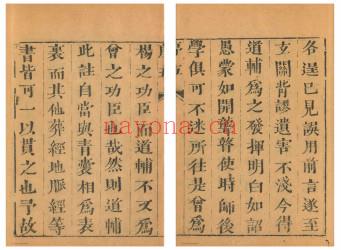 各逞已見誤用前言遂至
玄關皆謬遺害不淺今得
道輔爲之發揮明白如詔
愚蒙如開聾瞽使時師後
學俱可不迷所往是曾爲
楊之功臣也而道輔不又爲
曾之功臣也哉然則道輔
此註自當與青囊相爲表
裏而其他葬經地脈經等
書皆可一以貫之也予故
nayona.cn